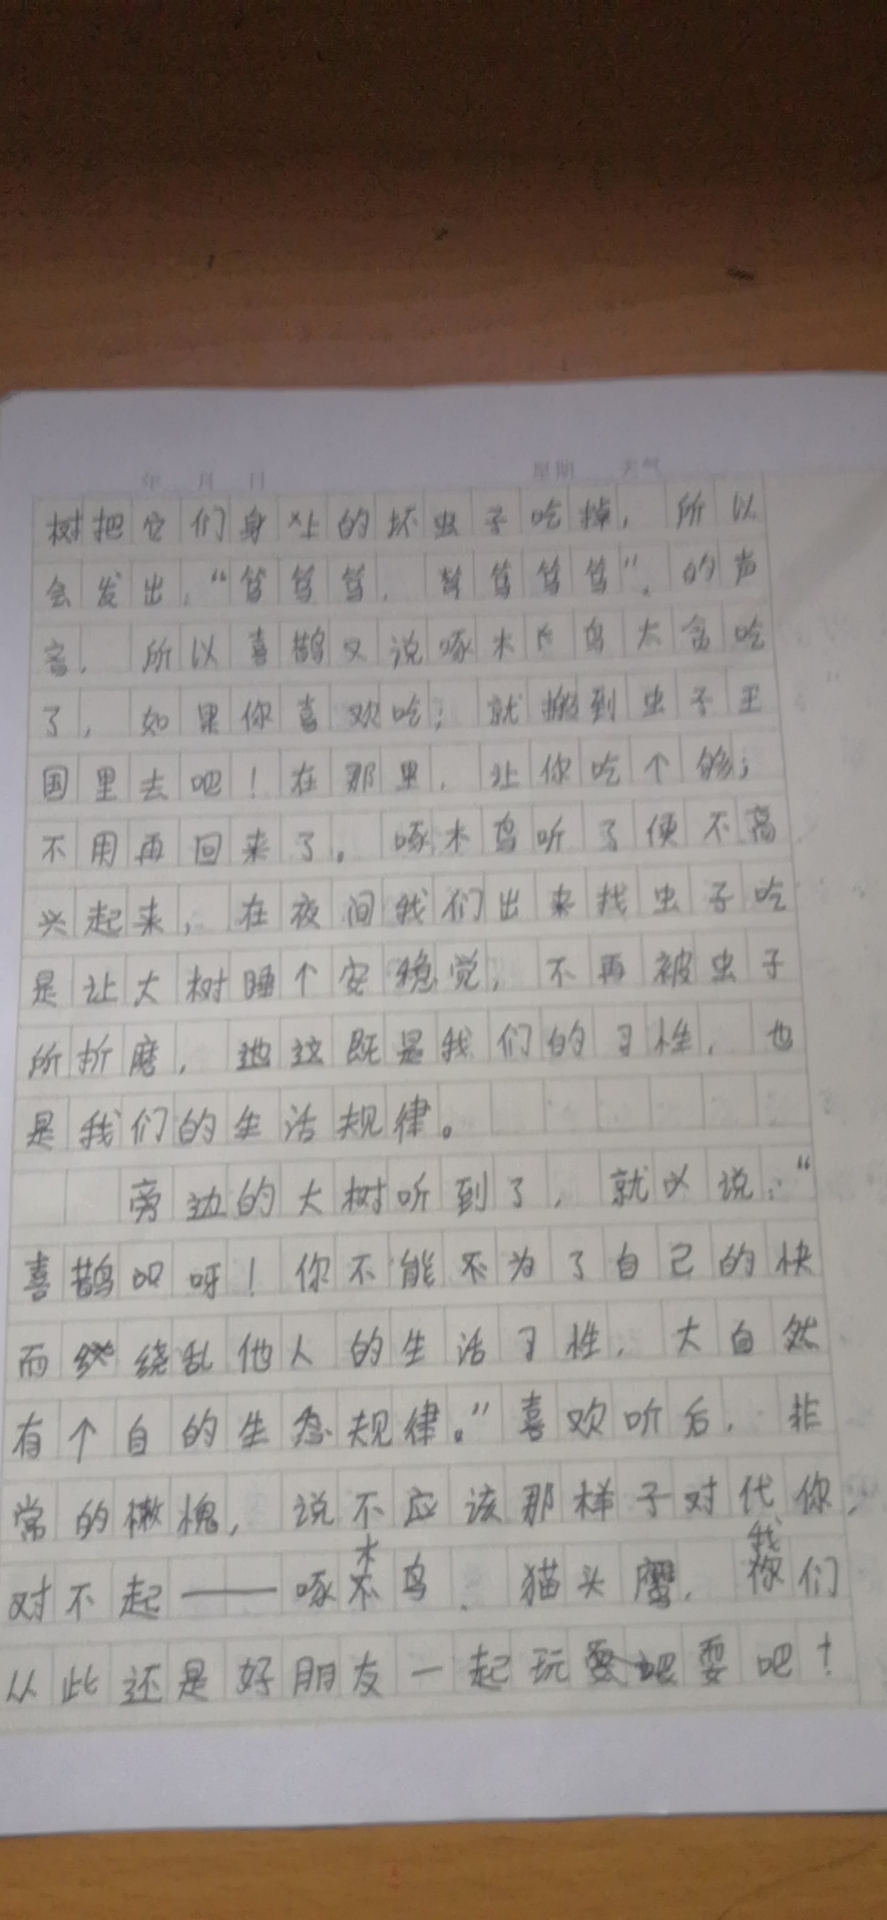 年 月 日 星期 天气
树把它们身上的坏虫子吃掉，所以
会发出，“笃笃笃，笃笃笃笃”，的声
音，所以喜鹊又说啄木鸟太贪吃
了，如果你喜欢吃；就搬到虫子王
国里去吧！在那里，让你吃个够；
不用再回来了。啄木鸟听了便不高
兴起来，在夜间我们出来找虫子吃
是让大树睡个安稳觉，不再被虫子
所折磨，这既是我们的习性，也
是我们的生活规律。
旁边的大树听到了，就说：“
喜鹊呀！你不能不为了自己的快
而绕乱他人的生活习性，大自然
有个自的生态规律。”喜欢听后，非
常的槐，说不应该那样子对代你，
对不起——啄木鸟、猫头鹰，我们
从此还是好朋友一起玩耍吧！